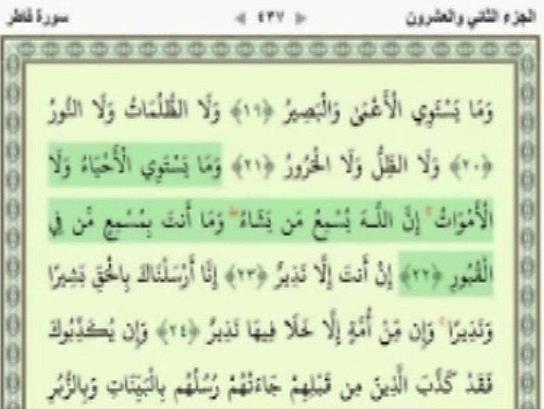 الجزء الثاني والعشرون ◄ ٤٣٧ ► سورة فاطر
وَمَا يَسْتَوِي الْأَعْمَىٰ وَالْبَصِيرُ ﴿١٩﴾ وَلَا الظُّلُمَاتُ وَلَا النُّورُ
﴿٢٠﴾ وَلَا الظِّلُّ وَلَا الْحَرُورُ ﴿٢١﴾ وَمَا يَسْتَوِي الْأَحْيَاءُ وَلَا
الْأَمْوَاتُ ۚ إِنَّ اللَّـهَ يُسْمِعُ مَن يَشَاءُ ۖ وَمَا أَنتَ بِمُسْمِعٍ مَّن فِي
الْقُبُورِ ﴿٢٢﴾ إِنْ أَنتَ إِلَّا نَذِيرٌ ﴿٢٣﴾ إِنَّا أَرْسَلْنَاكَ بِالْحَقِّ بَشِيرًا
وَنَذِيرًا ۚ وَإِن مِّنْ أُمَّةٍ إِلَّا خَلَا فِيهَا نَذِيرٌ ﴿٢٤﴾ وَإِن يُكَذِّبُوكَ
فَقَدْ كَذَّبَ الَّذِينَ مِن قَبْلِهِمْ جَاءَتْهُمْ رُسُلُهُم بِالْبَيِّنَاتِ وَبِالزُّبُرِ